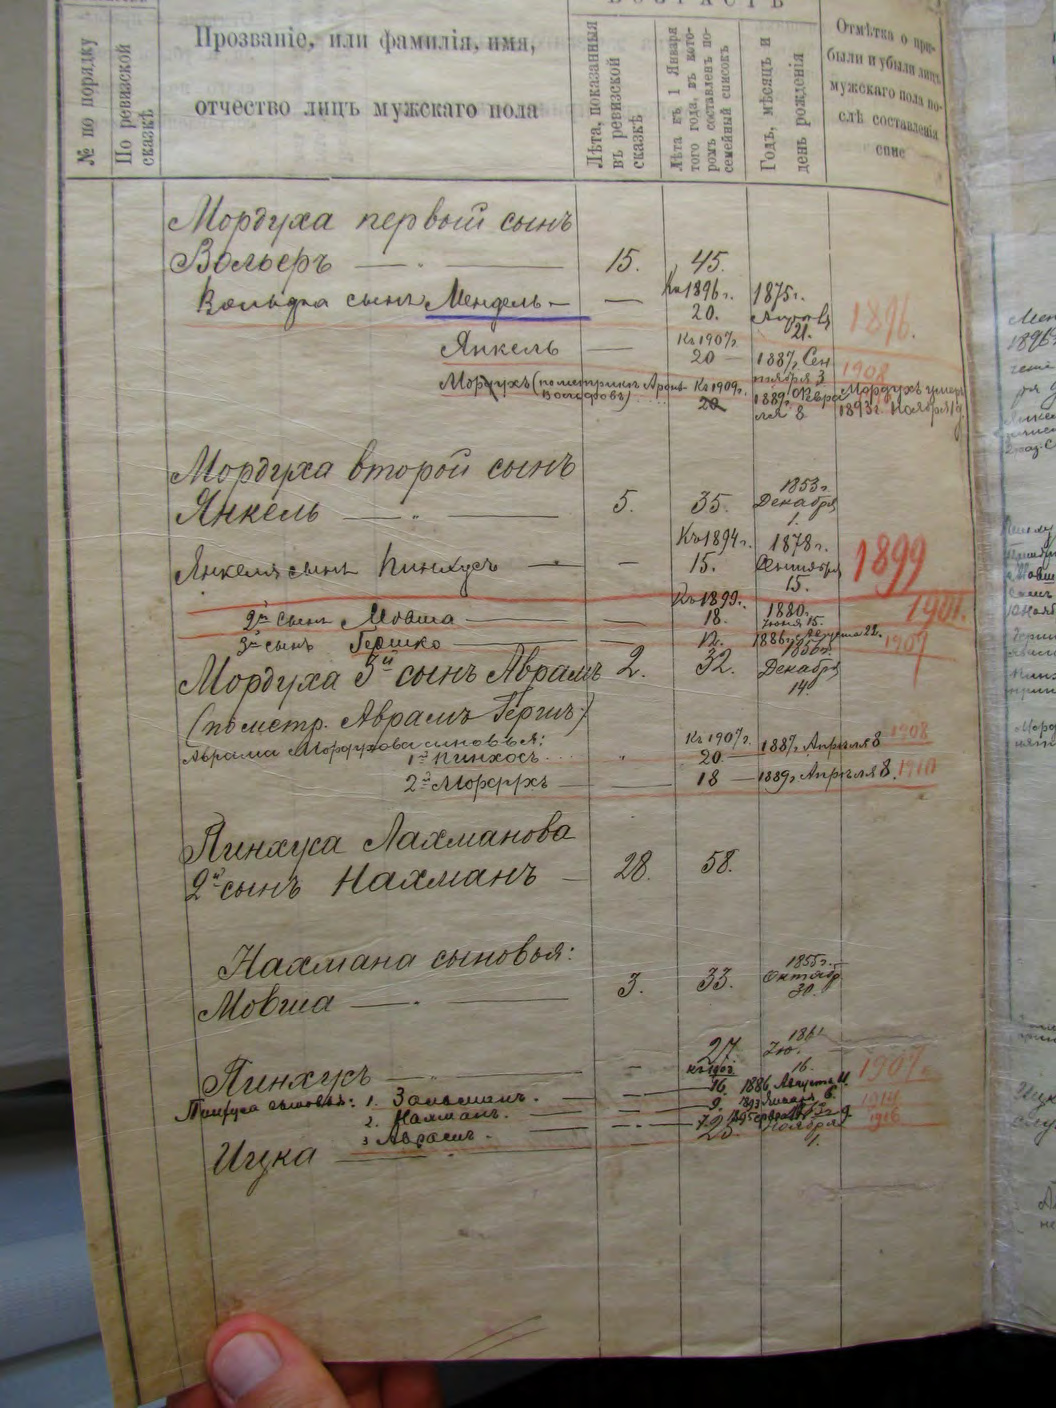 № по порядку
По ревизской сказкѣ
Прозваніе, или фамилія, имя,
отчество лицъ мужскаго пола
Лѣта, показанныя въ ревизской сказкѣ
Лѣта къ 1 Января того года, въ котором составленъ посемейный списокъ
Годъ, мѣсяцъ и день рожденія
Отмѣтка о при-
были и убыли лицъ
мужскаго пола по-
слѣ составленія
спис
Мордуха первый сынъ
Вольферъ — 15. 45.
Вольфа сынъ Мендель — — Къ 1896 г. 20. 1875 г. 21. 1896.
Янкель — Къ 1907 г. 20 — 1887 Сентября 3 1908
Мордухъ (по метрикѣ Аронъ Вольфовъ) Къ 1909 г. 20 1889 Февраля 8 Мордухъ умеръ
1893 г. Ноября
Мордуха второй сынъ
Янкель — 5. 35. 1853 г. Декабря 1.
Янкеля сынъ Пинхусъ — — Къ 1894 г. 15. 1878 г. Сентября 15. 1899
2й сынъ Мовша — — Къ 1899 г. 18. 1880. Іюня 15. 1901.
3й сынъ Гершко — — 12. 1886 г. Августа 22. 1907
Мордуха 3й сынъ Аврамъ 2. 32. 1856 г. Декабря 14.
(по метр. Аврамъ Гершъ)
Аврама Мордухова сыновья:
1й Пинхосъ Къ 1907 г. 20 — 1887 Апрѣля 8 1908
2й Мордухъ — — 18 — 1889 г. Апрѣля 8. 1910
Пинхуса Лахманова
2й сынъ Нахманъ — 28. 58.
Нахмана сыновья:
Мовша — 3. 33. 1855 г. Октябр. 30.
Пинхусъ — — 27. 1861 16. 1907
Пинхуса сыновья: 1. Зальманъ. — 16. 1886 Августа 11
2. Нахманъ. — 9. 1893 Января 6.
3 Аврамъ. — 1916
Ицка — 25. Ноября 1.